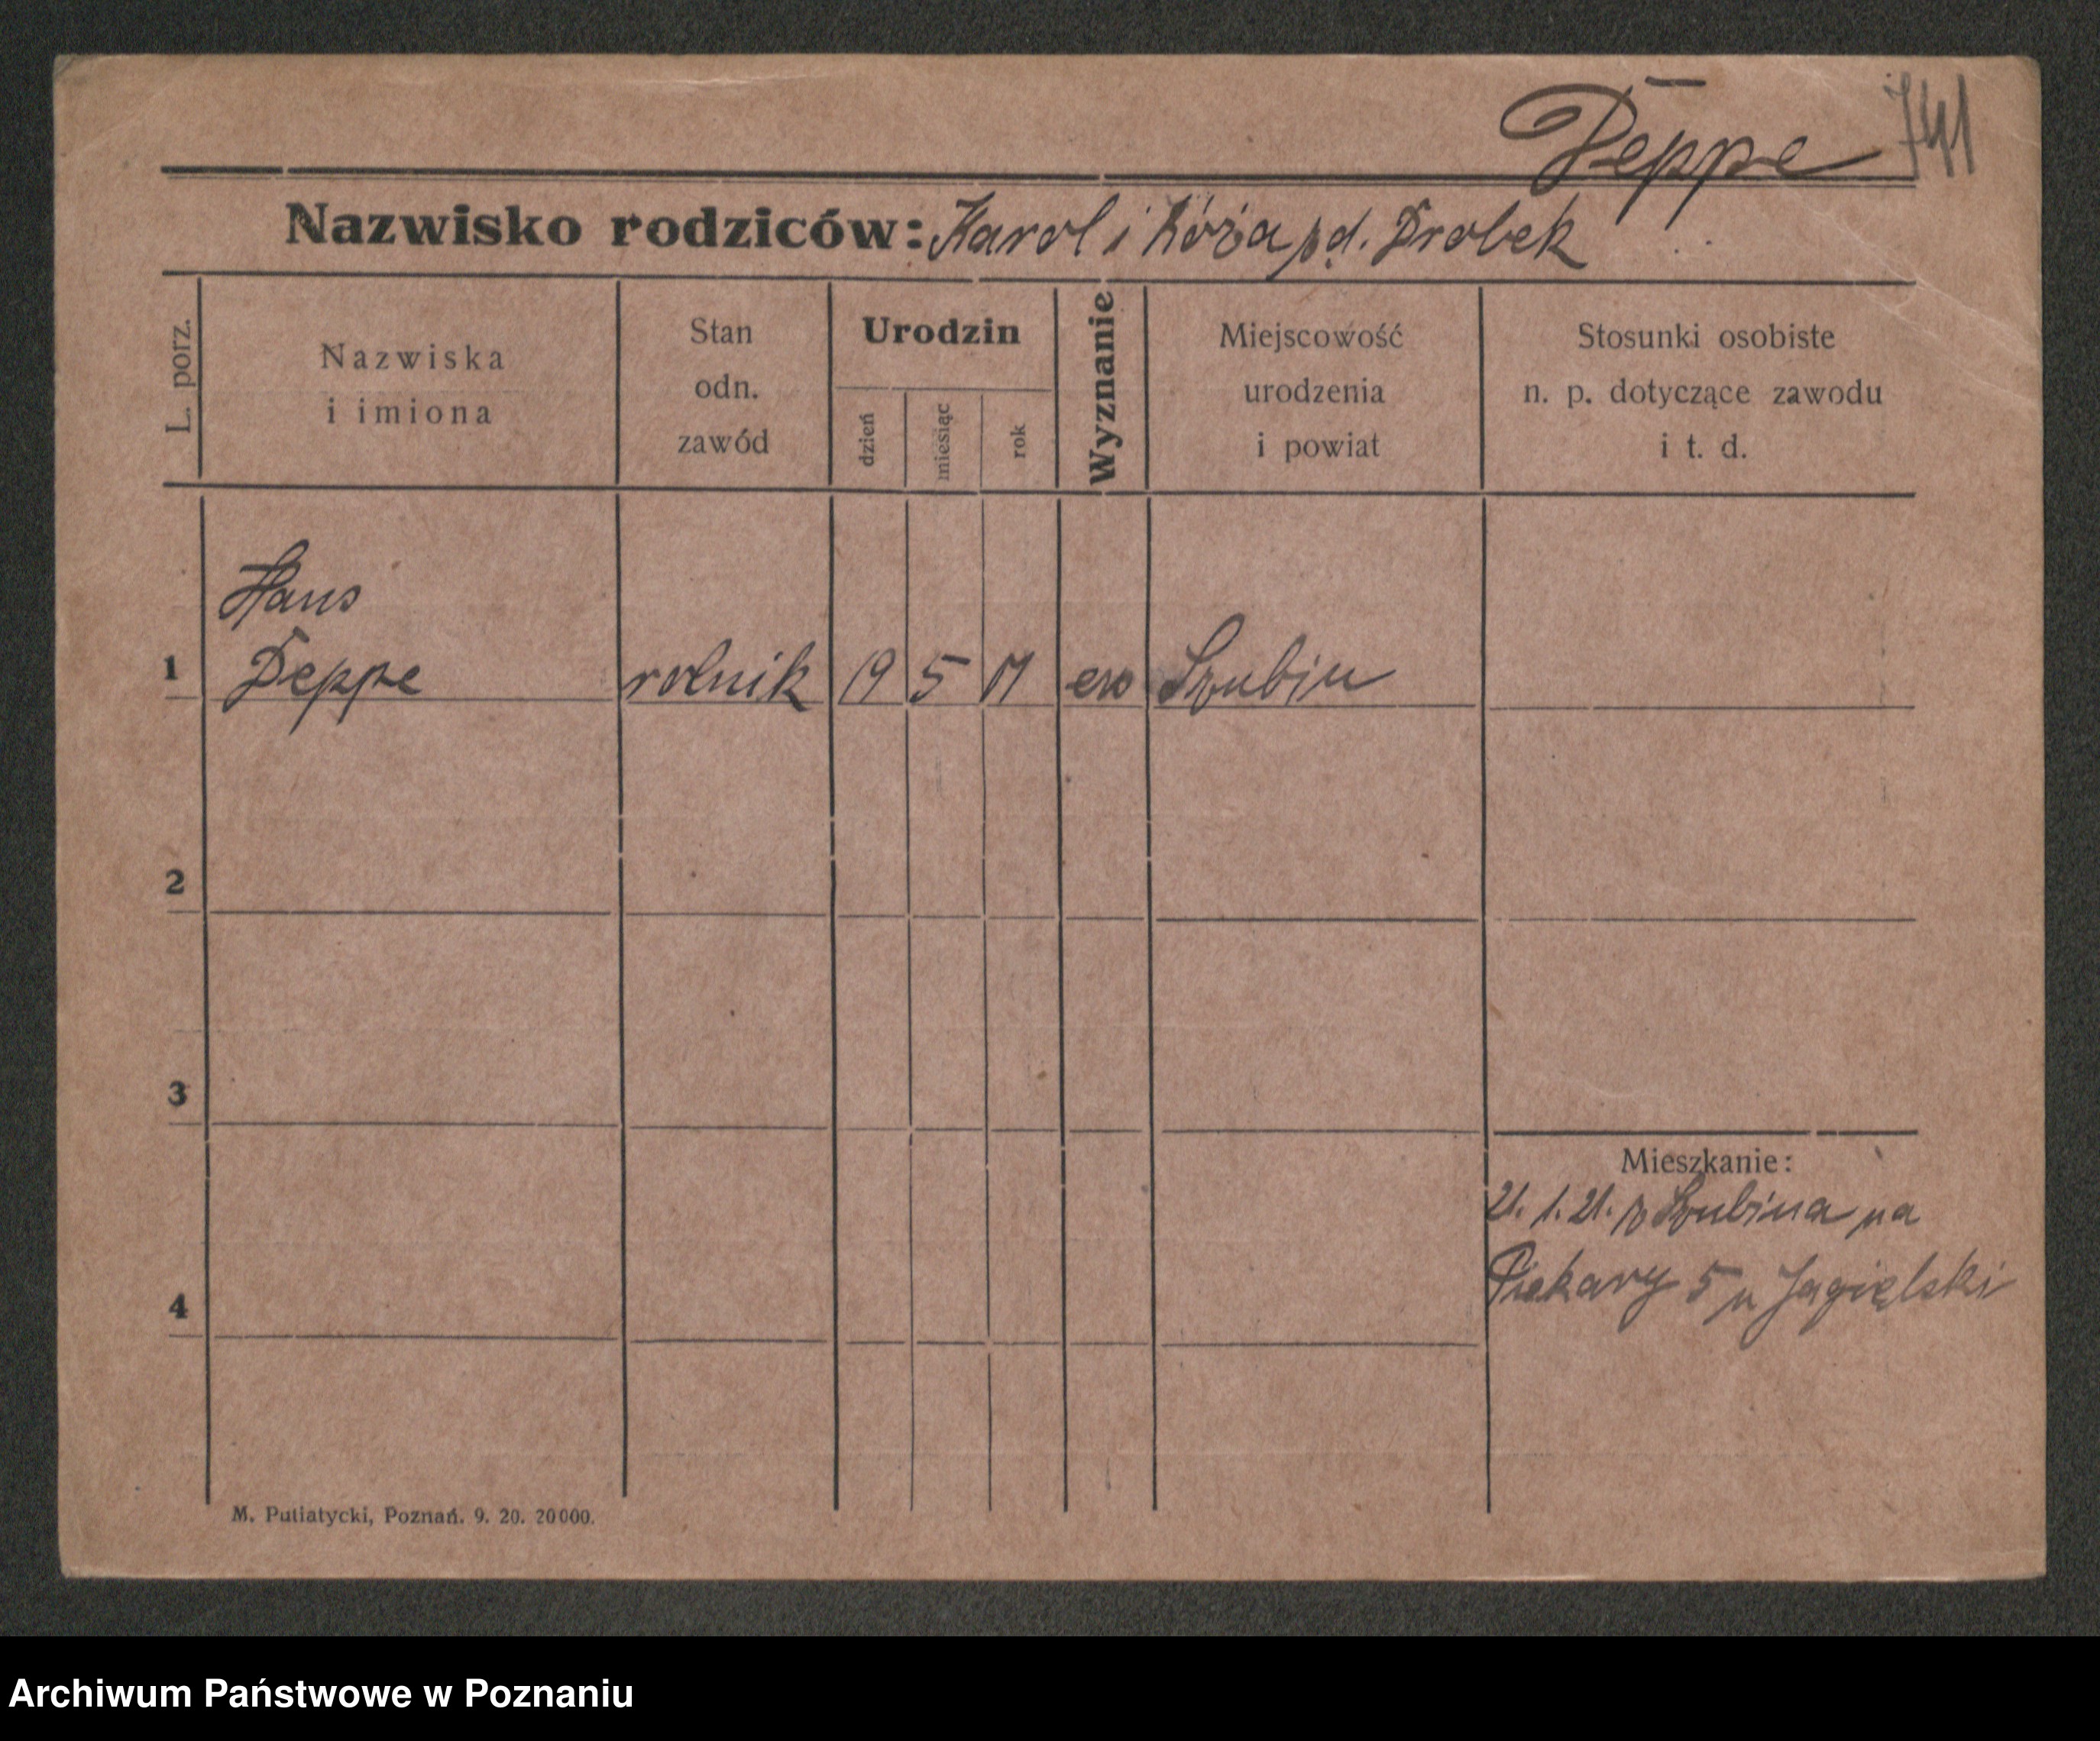 Deppe 741
Nazwisko rodziców: Karol i Róża pd. Drobek
L. porz.
Nazwiska
i imiona
Stan
odn.
zawód
Urodzin
dzień
miesiąc
rok
Wyznanie
Miejscowość
urodzenia
i powiat
Stosunki osobiste
n. p. dotyczące zawodu
i t. d.
Hans
1 Deppe rolnik 19 5 01 ew Szubin
2
3
Mieszkanie:
21. 1. 21. z Szubina na
Piekary 5 u Jagielski
4
M. Putiatycki, Poznań. 9. 20. 20000.
Archiwum Państwowe w Poznaniu